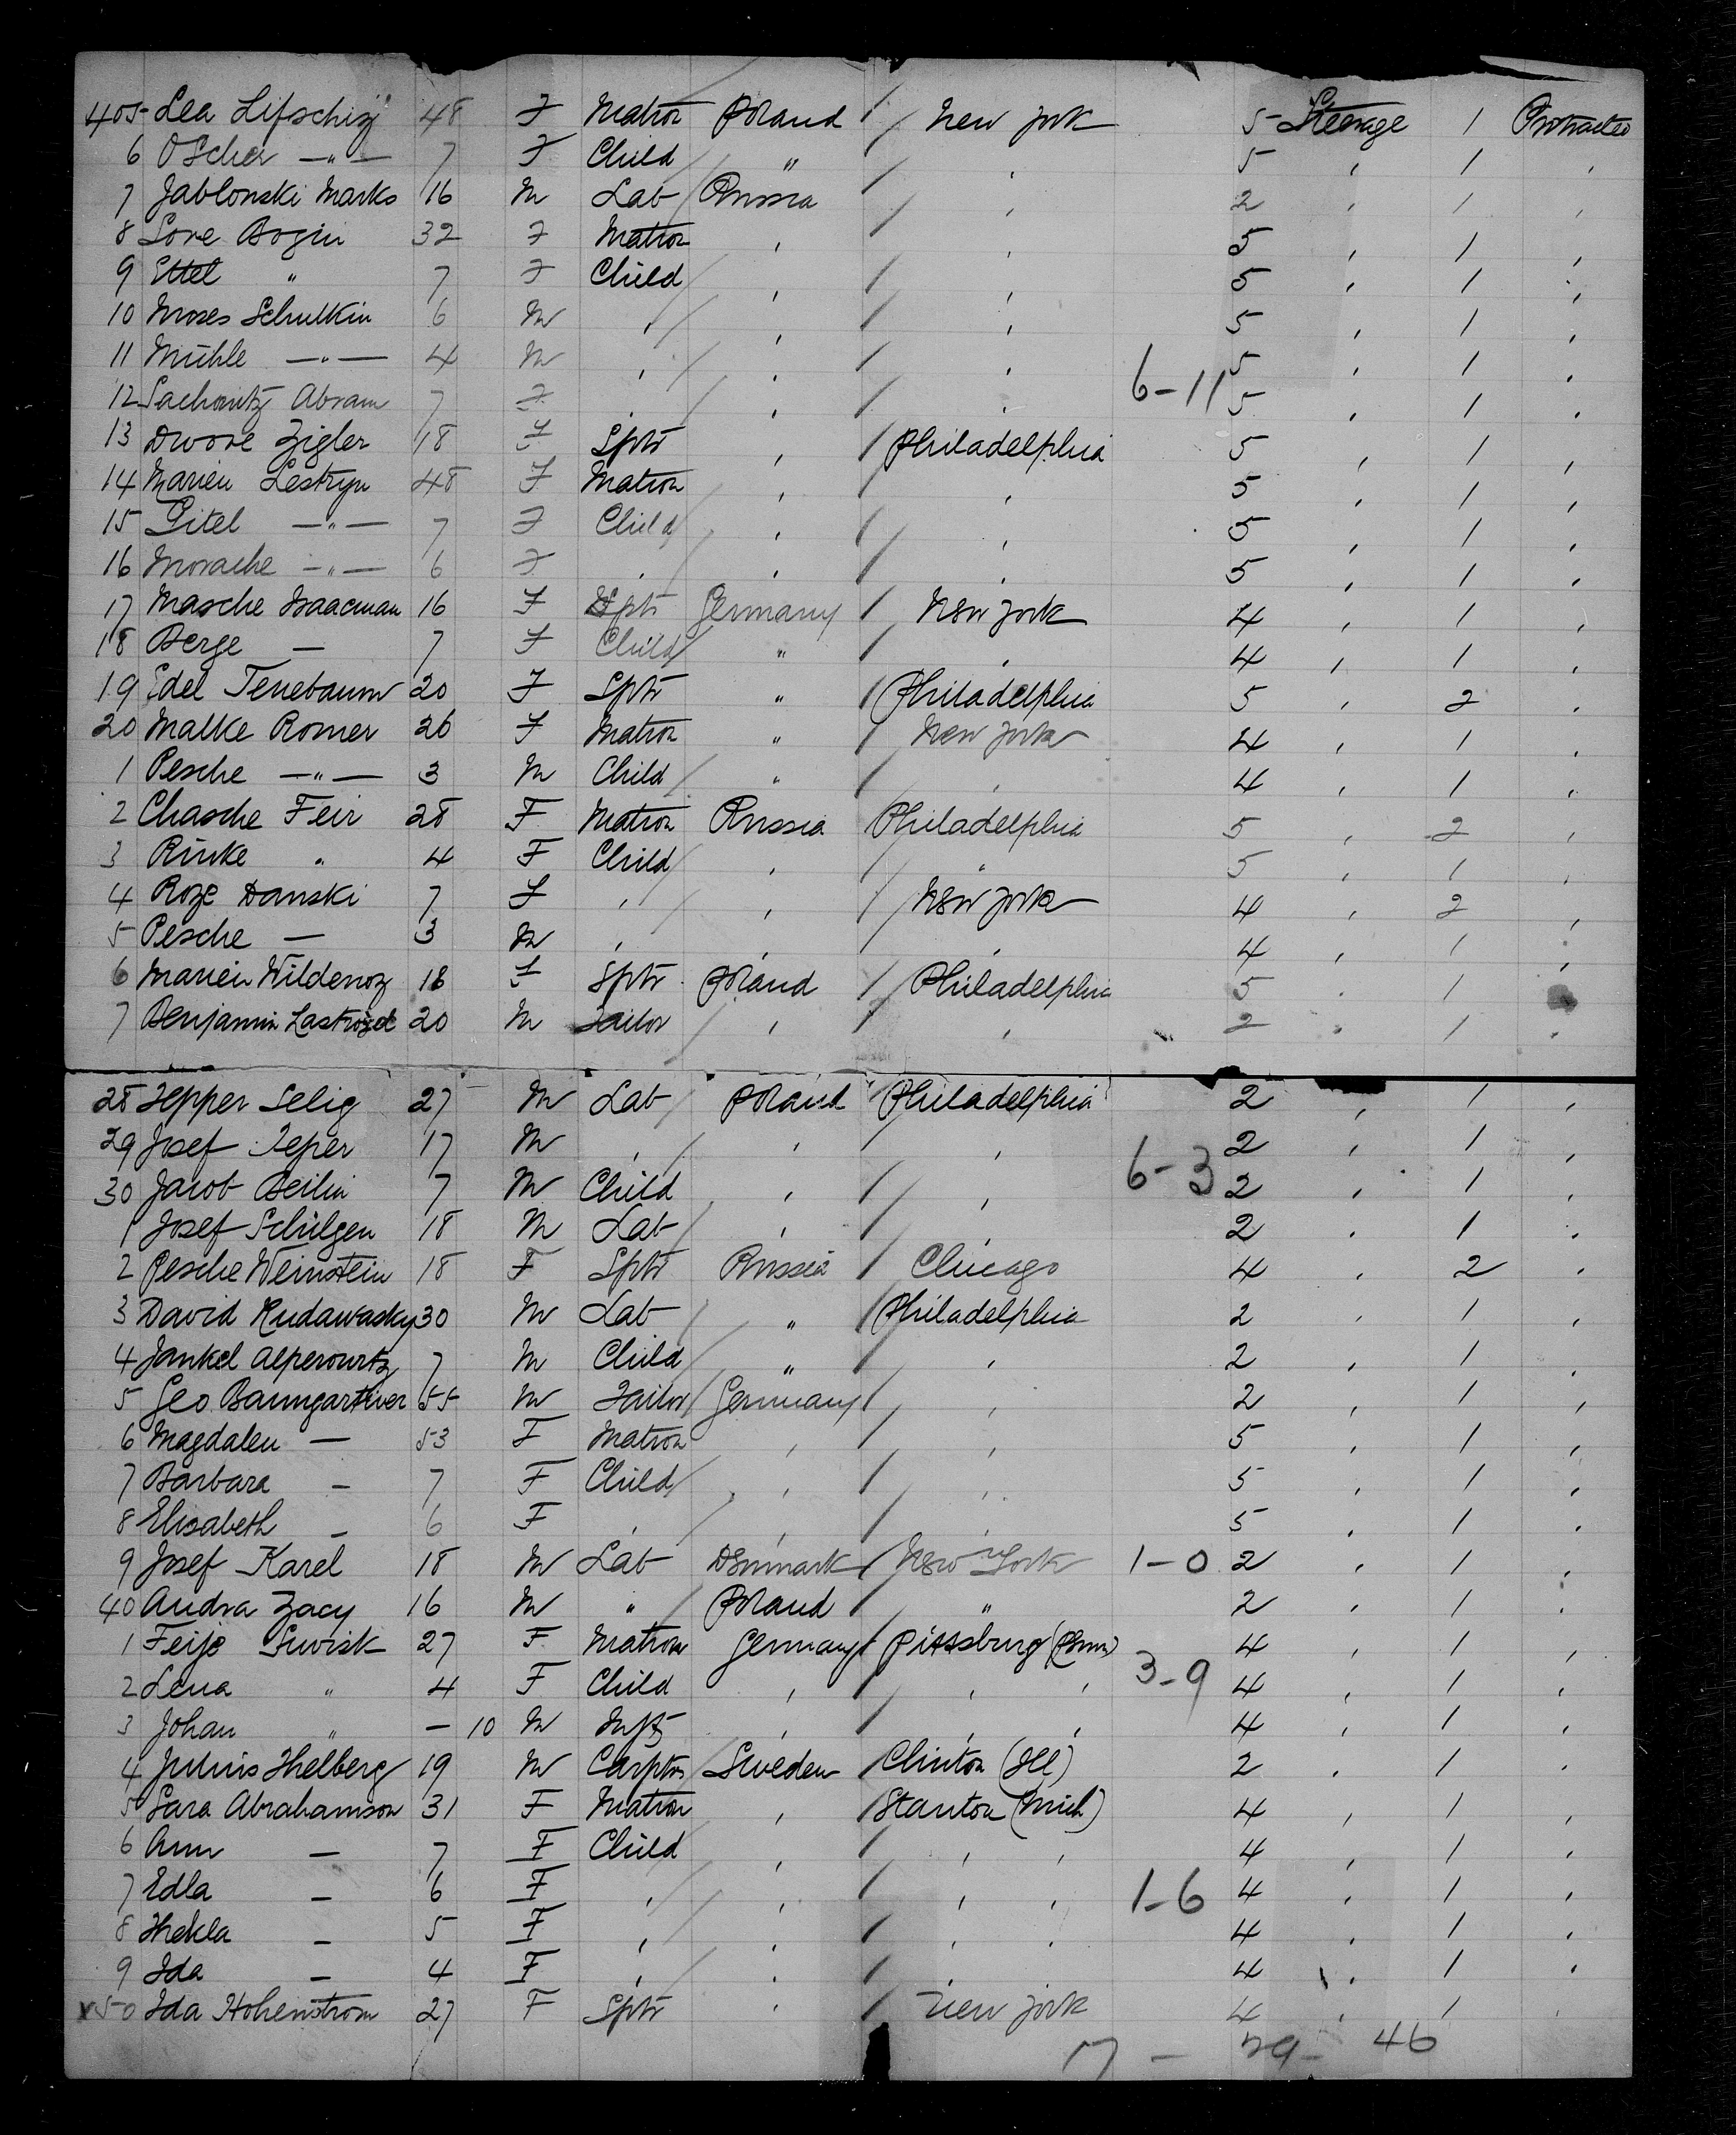 405 Lea Lifschiz 48 F Matron Poland / New York 5 Steerage 1 Protracted
6 Oscher —"— 7 F Child / " / , 5 , 1 ,
7 Jablonski Marks 16 M Lab / Russia / , 2 , 1 ,
8 Sore Bogin 32 F Matron , / , 5 , 1 ,
9 Ettel " 7 F Child / , / , 5 , 1 ,
10 Moses Schulkin 6 M , / , / , 5 , 1 ,
11 Mühle —"— 4 M , / , / , 5 , 1 ,
12 Sachowitz Abram 7 F , / , / , 6-11 5 , 1 ,
13 Dwore Zigler 18 F Sptr , / Philadelphia 5 , 1 ,
14 Marien Lestryn 48 F Matron , / , 5 , 1 ,
15 Gitel —"— 7 F Child / , / , 5 , 1 ,
16 Morache —"— 6 F , , / , 5 , 1 ,
17 Masche Isaacman 16 F Sptr Germany / New York 4 , 1 ,
18 Berge — 7 F Child / " / , 4 , 1 ,
19 Edel Tenebaum 20 F Sptr " / Philadelphia 5 , 2 ,
20 Malke Romer 26 F Matron " / New York 4 , 1 ,
1 Pesche —"— 3 M Child / " / , 4 , 1 ,
2 Chasche Feir 28 F Matron Russia / Philadelphia 5 , 2 ,
3 Rinke " 4 F Child / , / " 5 , 1 ,
4 Roze Danski 7 F , / , / New York 4 , 2 ,
5 Pesche — 3 M , / , / , 4 , 1 ,
6 Marien Wildenoz 18 F Sptr Poland / Philadelphia 5 , 1
7 Benjamin 20 M Tailor / , / , 2 , 1 ,
28 Tepper Selig 27 M Lab / Poland Philadelphia 2 , 1 ,
29 Josef Teper 17 M , / , / , 2 , 1 ,
30 Jacob Beilin 7 M Child / , / , 6-3 2 , 1 ,
1 Josef Schülgen 18 M Lab / , / , 2 , 1 ,
2 Pesche Weinstein 18 F Sptr Russia / Chicago 4 , 2 ,
3 David Rudawasky 30 M Lab / " / Philadelphia 2 , 1 ,
4 Jankel Alperowitz 7 M Child / " / , 2 , 1 ,
5 Geo Baumgartner 55 M Tailor / Germany / , 2 , 1 ,
6 Magdalen — 53 F Matron , / , 5 , 1 ,
7 Barbara — 7 F Child / , / , 5 , 1 ,
8 Elisabeth — 6 F , / , / , 5 , 1 ,
9 Josef Karel 18 M Lab Denmark / New York 1-0 2 , 1 ,
40 Andra Zacy 16 M " / Poland / " 2 , 1 ,
1 Feije Suvisk 27 F Matron Germany / Pittsburg (Penn) 4 , 1 ,
2 Lena " 4 F Child , / , , 3-9 4 , 1 ,
3 Johan " — 10 M Inft , / , , 4 , 1 ,
4 Julius Thelberg 19 M Carptr / Sweden / Clinton (Ill) 2 , 1 ,
5 Sara Abrahamson 31 F Matron , / Stanton (Mich) 4 , 1 ,
6 Ann — 7 F Child , / , , 4 , 1 ,
7 Edla — 6 F , / , / , , 1-6 4 , 1 ,
8 Thekla — 5 F , / , / , , 4 , 1 ,
9 Ida — 4 F , / , / , 4 , 1 ,
50 Ida Hohenstrom 27 F Sptr , / New York 4 , 1 ,
17 — 29 — 46